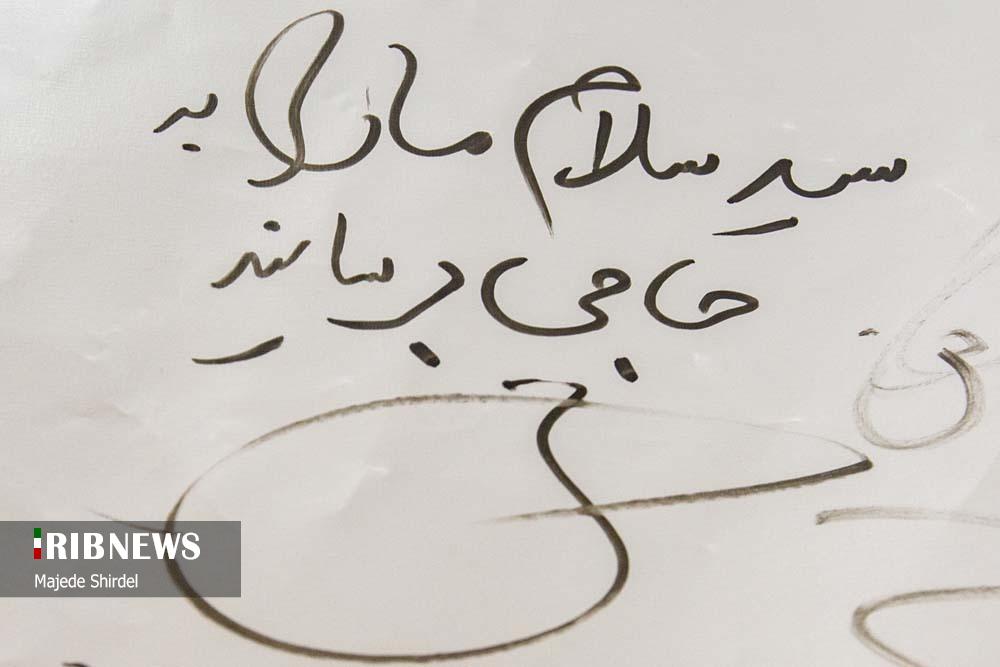 سید سلام ما را به
حاجی برسانید
IRIBNEWS
Majede Shirdel